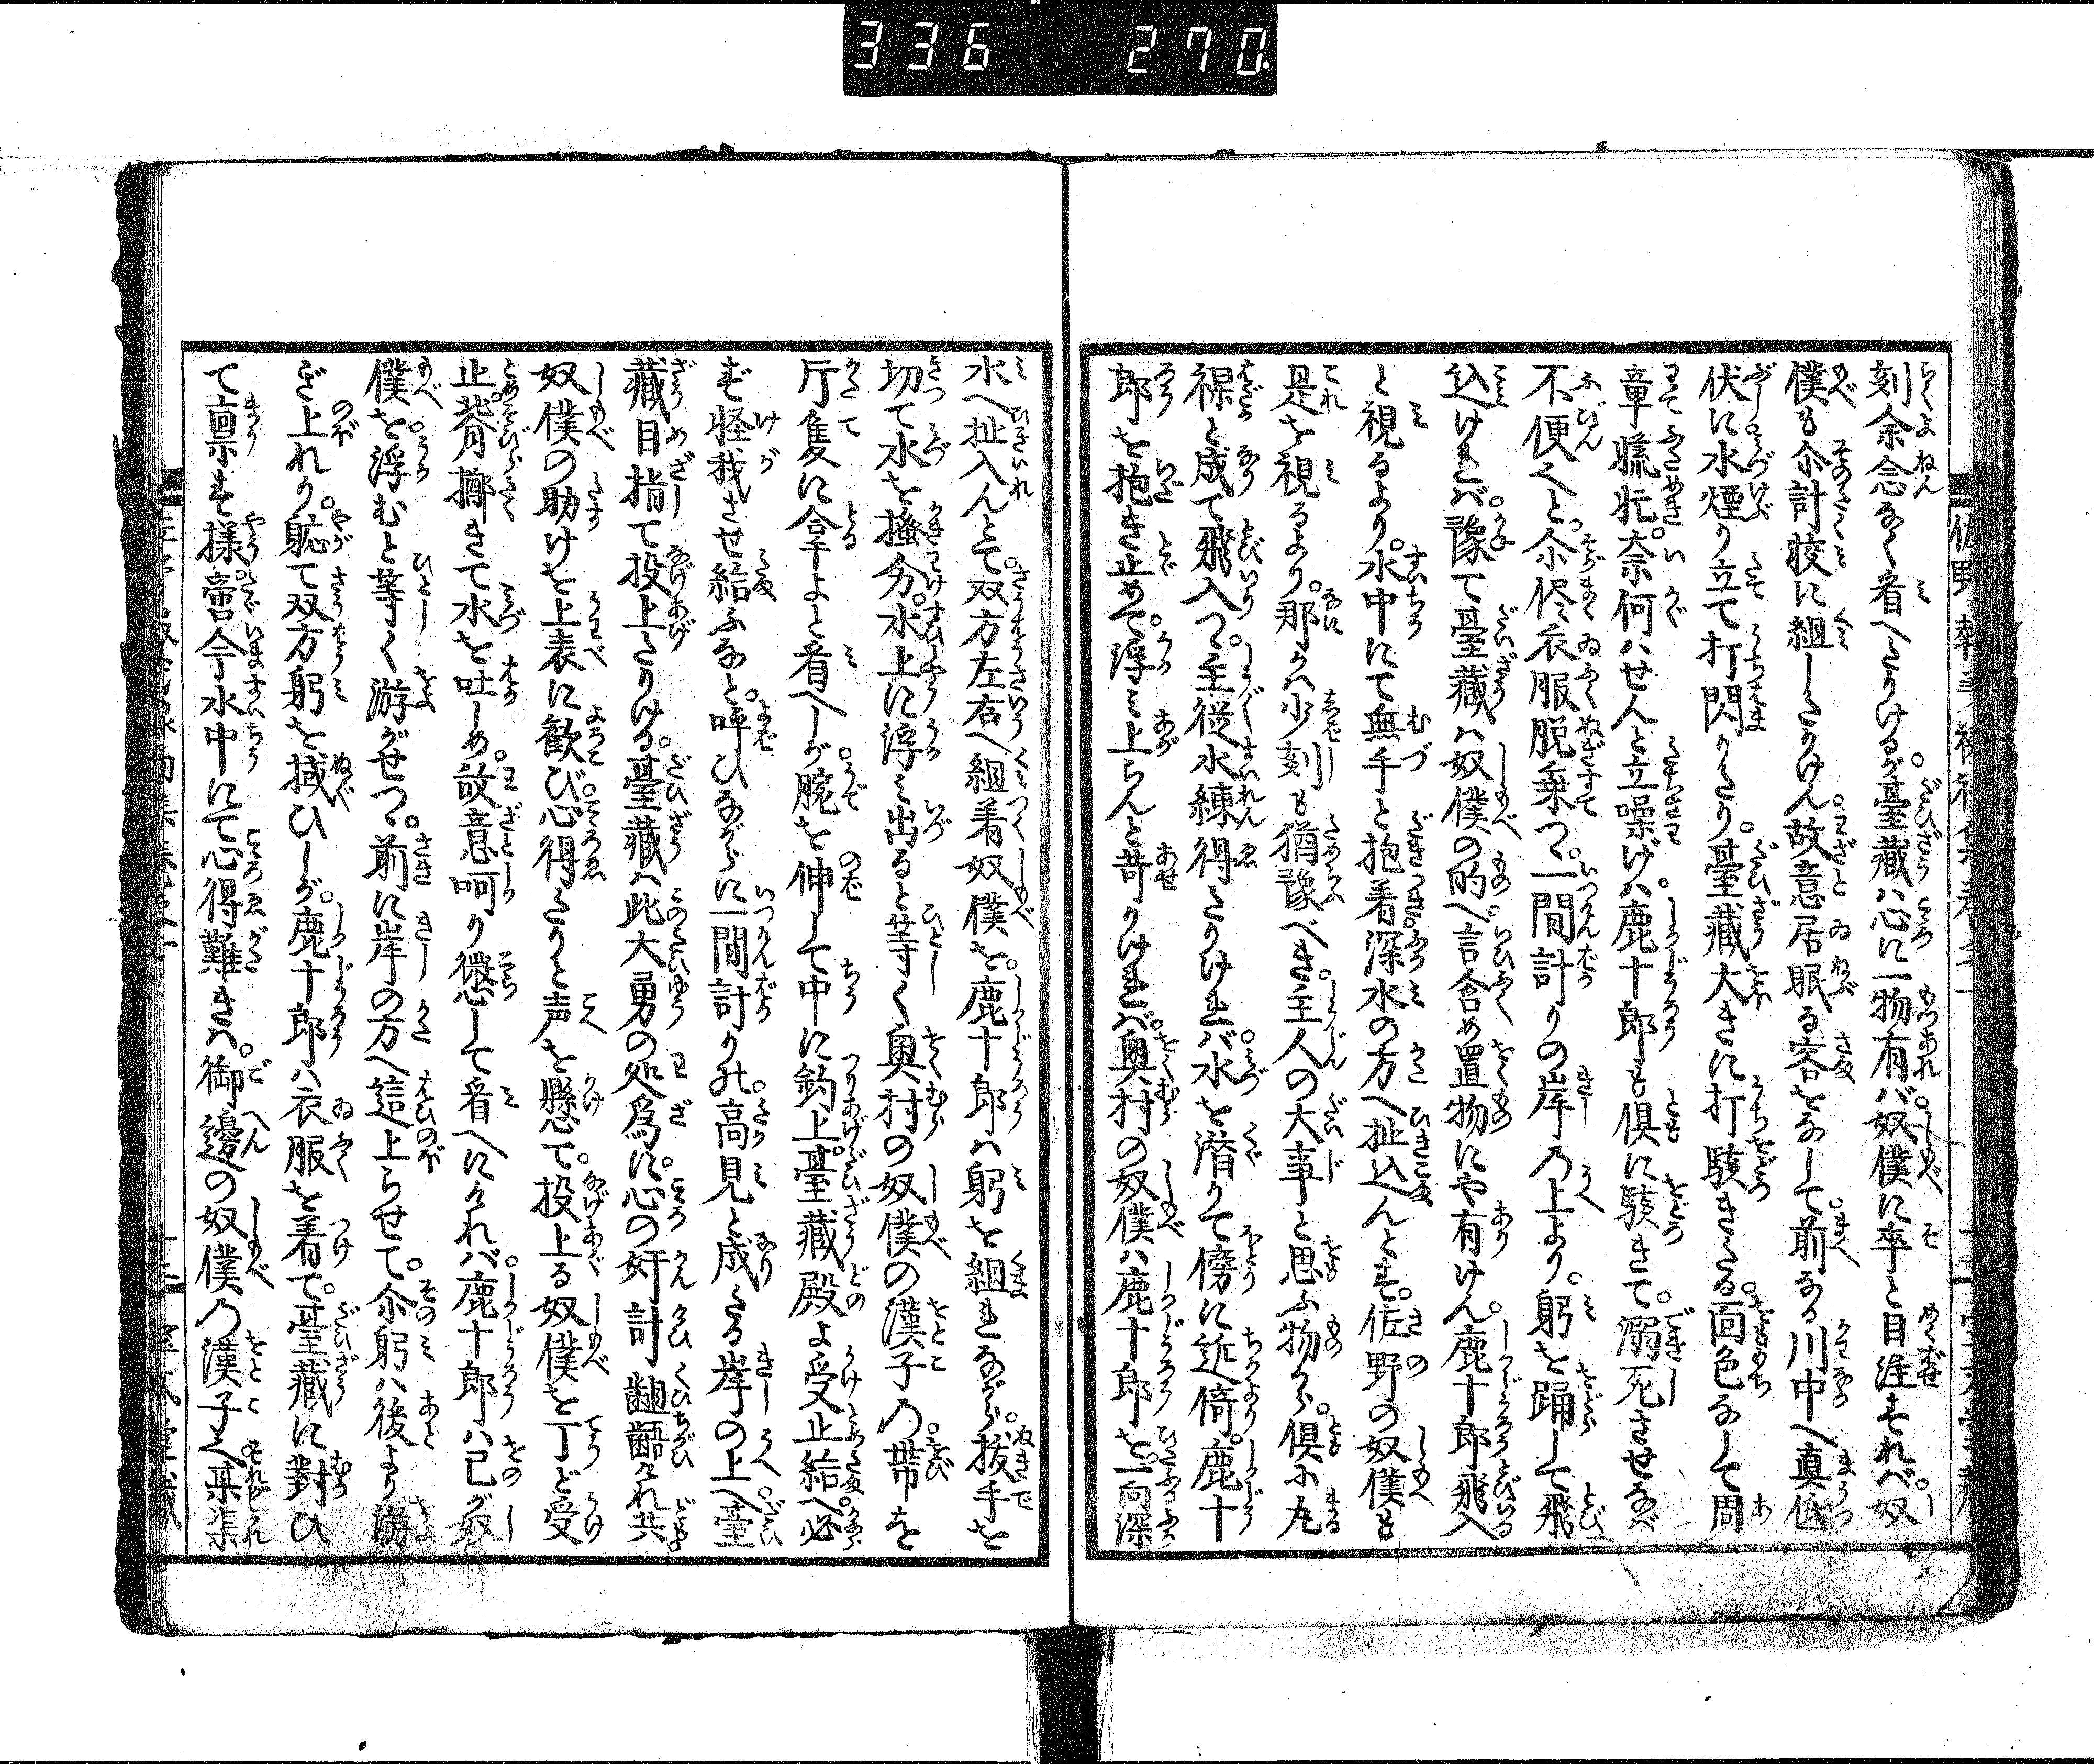 336 270
刻余念なく看へたりけるが。臺藏ハ心に一物有バ。奴僕に卒と目注すれバ。奴
僕も尒計挍に組したりけん。故意居眠る容をなして。前なる川中へ真低
伏に水煙り立て打閃りたり。臺藏大きに打駭きたる。面色なして周
章慌忙。奈何ハせんと立噪げバ。鹿十郎も倶に駭きて。溺死させなバ
不便也と。尒侭衣服脱棄つゝ。一間計りの岸の上より。躬を踊して飛
込けれバ。豫て臺藏ハ奴僕の的へ。言含め置物にや有けん。鹿十郎飛入
と視るより。水中にて無手と抱着。深水の方へ扯込んとす。佐野の奴僕も
是を視るより。那ハ少刻も猶豫べき。主人の大事と思ふ物から。倶に丸
裸と成て飛入つゝ。主従水練得たりけれバ。水を潜りて傍に近倚。鹿十
郎を抱き止めて。浮ミ上らんと苛りけれバ。奥村の奴僕ハ鹿十郎を。一向深
水へ扯入んとて。双方左右へ組着奴僕を。鹿十郎ハ躬を組れながら。拔手を
切て水を搔分。水上に浮ミ出ると等く。奥村の奴僕の漢子の。帯を
片隻に合手よと看へしが。腕を伸して中に釣上。臺藏殿よ受止給へ。必
ず怪我させ給ふなと。呼ひながらに一間計りれ。高見と成たる岸の上へ。臺
藏目指て投上たりける。臺藏ハ此大勇の処爲に。心の奸計齟齬たれ共
奴僕の助けを上表に歓び。心得たりと声を懸て。投上る奴僕を丁ど受
止。背擲きて水を吐しめ。故意呵り懲して看へにけれバ。鹿十郎ハ己が奴
僕を。浮むと等く游がせつゝ。前に岸の方へ這上らせて。尒躬ハ後より游
ぎ上れり。躮て双方躬を掝ひしが。鹿十郎ハ衣服を着て。臺藏に對ひ
て禀す樣。啻今水中にて心得難きハ。御邊の奴僕の漢子也某渠